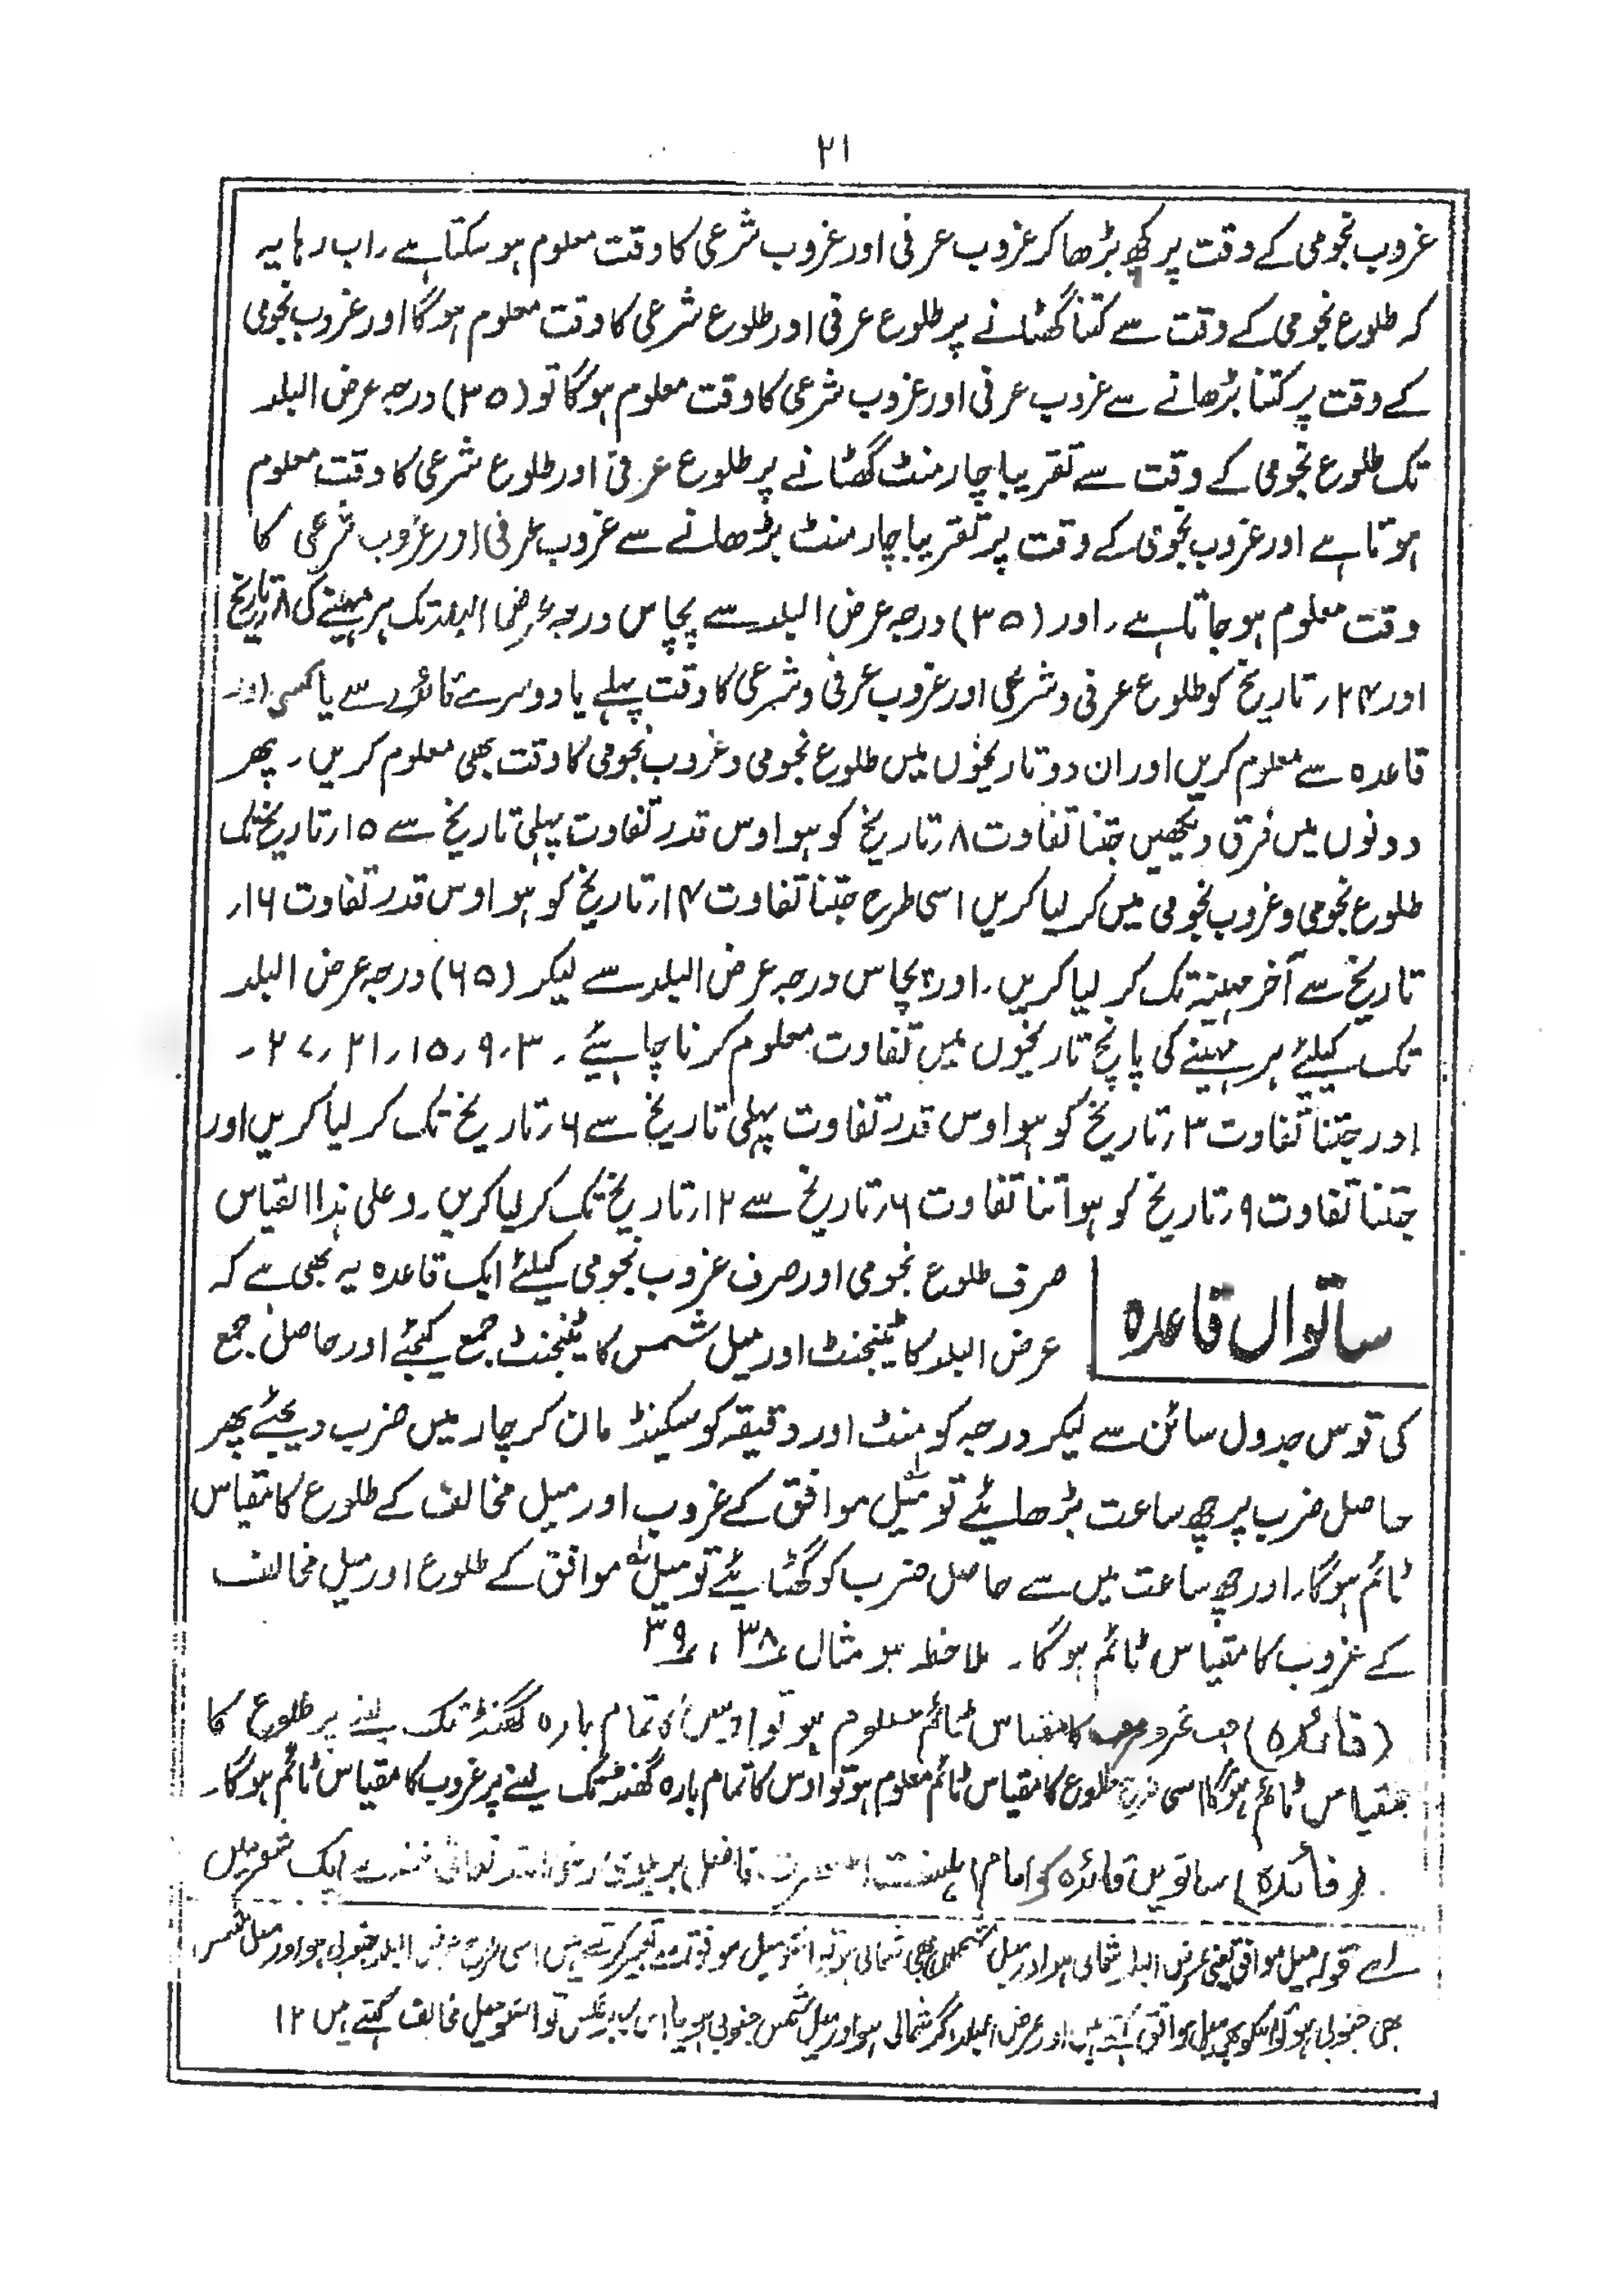 ۲۱
غروب نجومی کے وقت پر کچھ بڑھا کر غروب عرفی اور غروب شرعی کا وقت معلوم ہو سکتا ہے، اب رہا یہ
کہ طلوع نجومی کے وقت سے کتنا گھٹانے پر طلوع عرفی اور طلوع شرعی کا وقت معلوم ہوگا اور غروب نجومی
کے وقت پر کتنا بڑھانے سے غروب عرفی اور غروب شرعی کا وقت معلوم ہوگا تو (۳۵) درجہ عرض البلد
تک طلوع نجومی کے وقت سے تقریبا چار منٹ گھٹانے پر طلوع عرفی اور طلوع شرعی کا وقت معلوم
ہوتا ہے اور غروب نجومی کے وقت پر تقریبا چار منٹ بڑھانے سے غروب عرفی اور غروب شرعی کا
وقت معلوم ہو جاتا ہے، اور (۳۵) درجہ عرض البلد سے پچاس درجہ عرض البلد تک ہر مہینے کی ۸ تاریخ
اور ۲۴ر تاریخ کو طلوع عرفی و شرعی اور غروب عرفی و شرعی کا وقت پہلے یا دوسرے قاعدے سے یا کسی اور
قاعدہ سے معلوم کریں اور ان دو تاریخوں میں طلوع نجومی و غروب نجومی کا وقت بھی معلوم کریں۔ پھر
دونوں میں فرق دیکھیں جتنا تفاوت ۸ر تاریخ کو ہو اوس قدر تفاوت پہلی تاریخ سے ۱۵ر تاریخ تک
طلوع نجومی و غروب نجومی میں کر لیا کریں اسی طرح جتنا تفاوت ۲۴ر تاریخ کو ہو اوس قدر تفاوت ۱۶ر
تاریخ سے آخر مہینہ تک کر لیا کریں۔ اور پچاس درجہ عرض البلد سے لیکر (۶۵) درجہ عرض البلد
تک کیلئے ہر مہینے کی پانچ تاریخوں میں تفاوت معلوم کرنا چاہیئے۔ ۳، ۹، ۱۵، ۲۱، ۲۷۔
اور جتنا تفاوت ۳ر تاریخ کو ہو اوس قدر تفاوت پہلی تاریخ سے ۶ر تاریخ تک کر لیا کریں اور
جتنا تفاوت ۹ر تاریخ کو ہو اتنا تفاوت ۶ر تاریخ سے ۱۲ر تاریخ تک کر لیا کریں۔ و علی ہذا القیاس
ساتواں قاعدہ
صرف طلوع نجومی اور صرف غروب نجومی کیلئے ایک قاعدہ یہ بھی ہے کہ
عرض البلد کا ٹینجنٹ اور میل شمس کا ٹینجنٹ جمع کیجئے اور حاصل جمع
کی قوس جدول سائن سے لیکر درجہ کو منٹ اور دقیقہ کو سیکنڈ مان کر چار میں ضرب دیجئے پھر
حاصل ضرب پر چھ ساعت بڑھایئے تو میل موافق کے غروب اور میل مخالف کے طلوع کا مقیاس
ٹائم ہوگا، اور چھ ساعت میں سے حاصل ضرب کو گھٹایئے تو میل موافق کے طلوع اور میل مخالف
کے غروب کا مقیاس ٹائم ہوگا۔ ملاحظہ ہو مثال ۳۸، ۳۹
(فائدہ) جب غروب کا مقیاس ٹائم معلوم ہو تو اوس کا تمام بارہ گھنٹہ تک لینے پر طلوع کا
مقیاس ٹائم ہوگا اسی طرح طلوع کا مقیاس ٹائم معلوم ہو تو اوس کا تمام بارہ گھنٹہ تک لینے پر غروب کا مقیاس ٹائم ہوگا۔
(فائدہ) ساتویں قاعدہ کو امام اہلسنت اعلیٰحضرت فاضل بریلوی رضی اللہ تعالیٰ عنہ نے ایک شعر میں
لے قولہ میل موافق یعنی عرض البلد شمالی ہو اور میل شمس بھی شمالی ہو تو اسکو میل موافق سے تعبیر کرتے ہیں اسی طرح عرض البلد جنوبی ہو اور میل شمس
بھی جنوبی ہو تو اسکو بھی میل موافق کہتے ہیں اور عرض البلد اگر شمالی ہو اور میل شمس جنوبی ہو یا اس کا برعکس تو اسکو میل مخالف کہتے ہیں ۱۲